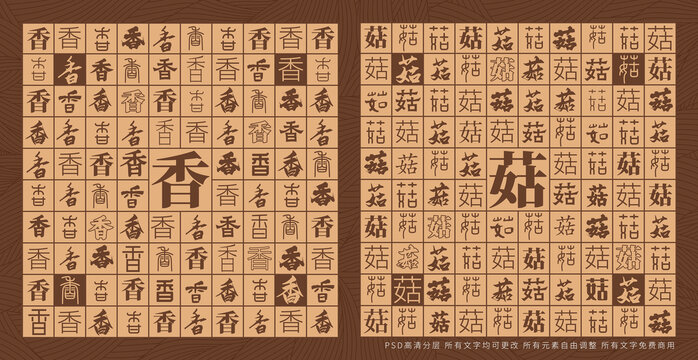 香香香香香香香香香香
香香香香香香香香香香
香香香香香香香香香香
香香香香香香香香香香
香香香香香香香香香
香香香香香香香香
香香香香香香香香香香
香香香香香香香香香香
香香香香香香香香香香
香香香香香香香香香香
菇菇菇菇菇菇菇菇菇菇
菇菇菇菇菇菇菇菇菇菇
菇菇菇菇菇菇菇菇菇菇
菇菇菇菇菇菇菇菇菇菇
菇菇菇菇菇菇菇菇菇
菇菇菇菇菇菇菇菇
菇菇菇菇菇菇菇菇菇菇
菇菇菇菇菇菇菇菇菇菇
菇菇菇菇菇菇菇菇菇菇
菇菇菇菇菇菇菇菇菇菇
PSD高清分层 所有文字均可更改 所有元素自由调整 所有文字免费商用